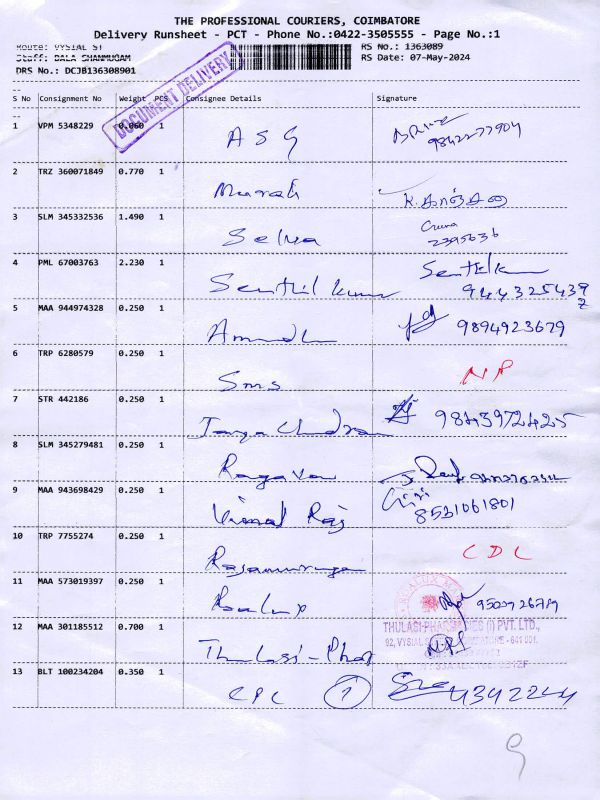 THE PROFESSIONAL COURIERS, COIMBATORE
Delivery Runsheet - PCT - Phone No.:0422-3505555 - Page No.:1
Route: VYSIAL ST RS No.: 1363089
Staff: BALA SHANMUGAM RS Date: 07-May-2024
DRS No.: DCJB136308901
DOCUMENT DELIVERY
S No Consignment No Weight PCS Consignee Details Signature
1 VPM 5348229 0.060 1 ASG 9842277904
2 TRZ 360071849 0.770 1 Murali
3 SLM 345332536 1.490 1 Selva 2395636
4 PML 67003763 2.230 1 Senthil kumar
5 MAA 944974328 0.250 1 9894923679
6 TRP 6280579 0.250 1 Sms NP
7 STR 442186 0.250 1 Jaya Chandran 9843972425
8 SLM 345279481 0.250 1 Ragavan
9 MAA 943698429 0.250 1 Vimal Raj 8531061801
10 TRP 7755274 0.250 1 CDC
11 MAA 573019397 0.250 1
THULASI PHARMACIES (I) PVT. LTD.,
12 MAA 301185512 0.700 1 Thulasi-Phar
13 BLT 100234204 0.350 1 CPC 1 4342244
9